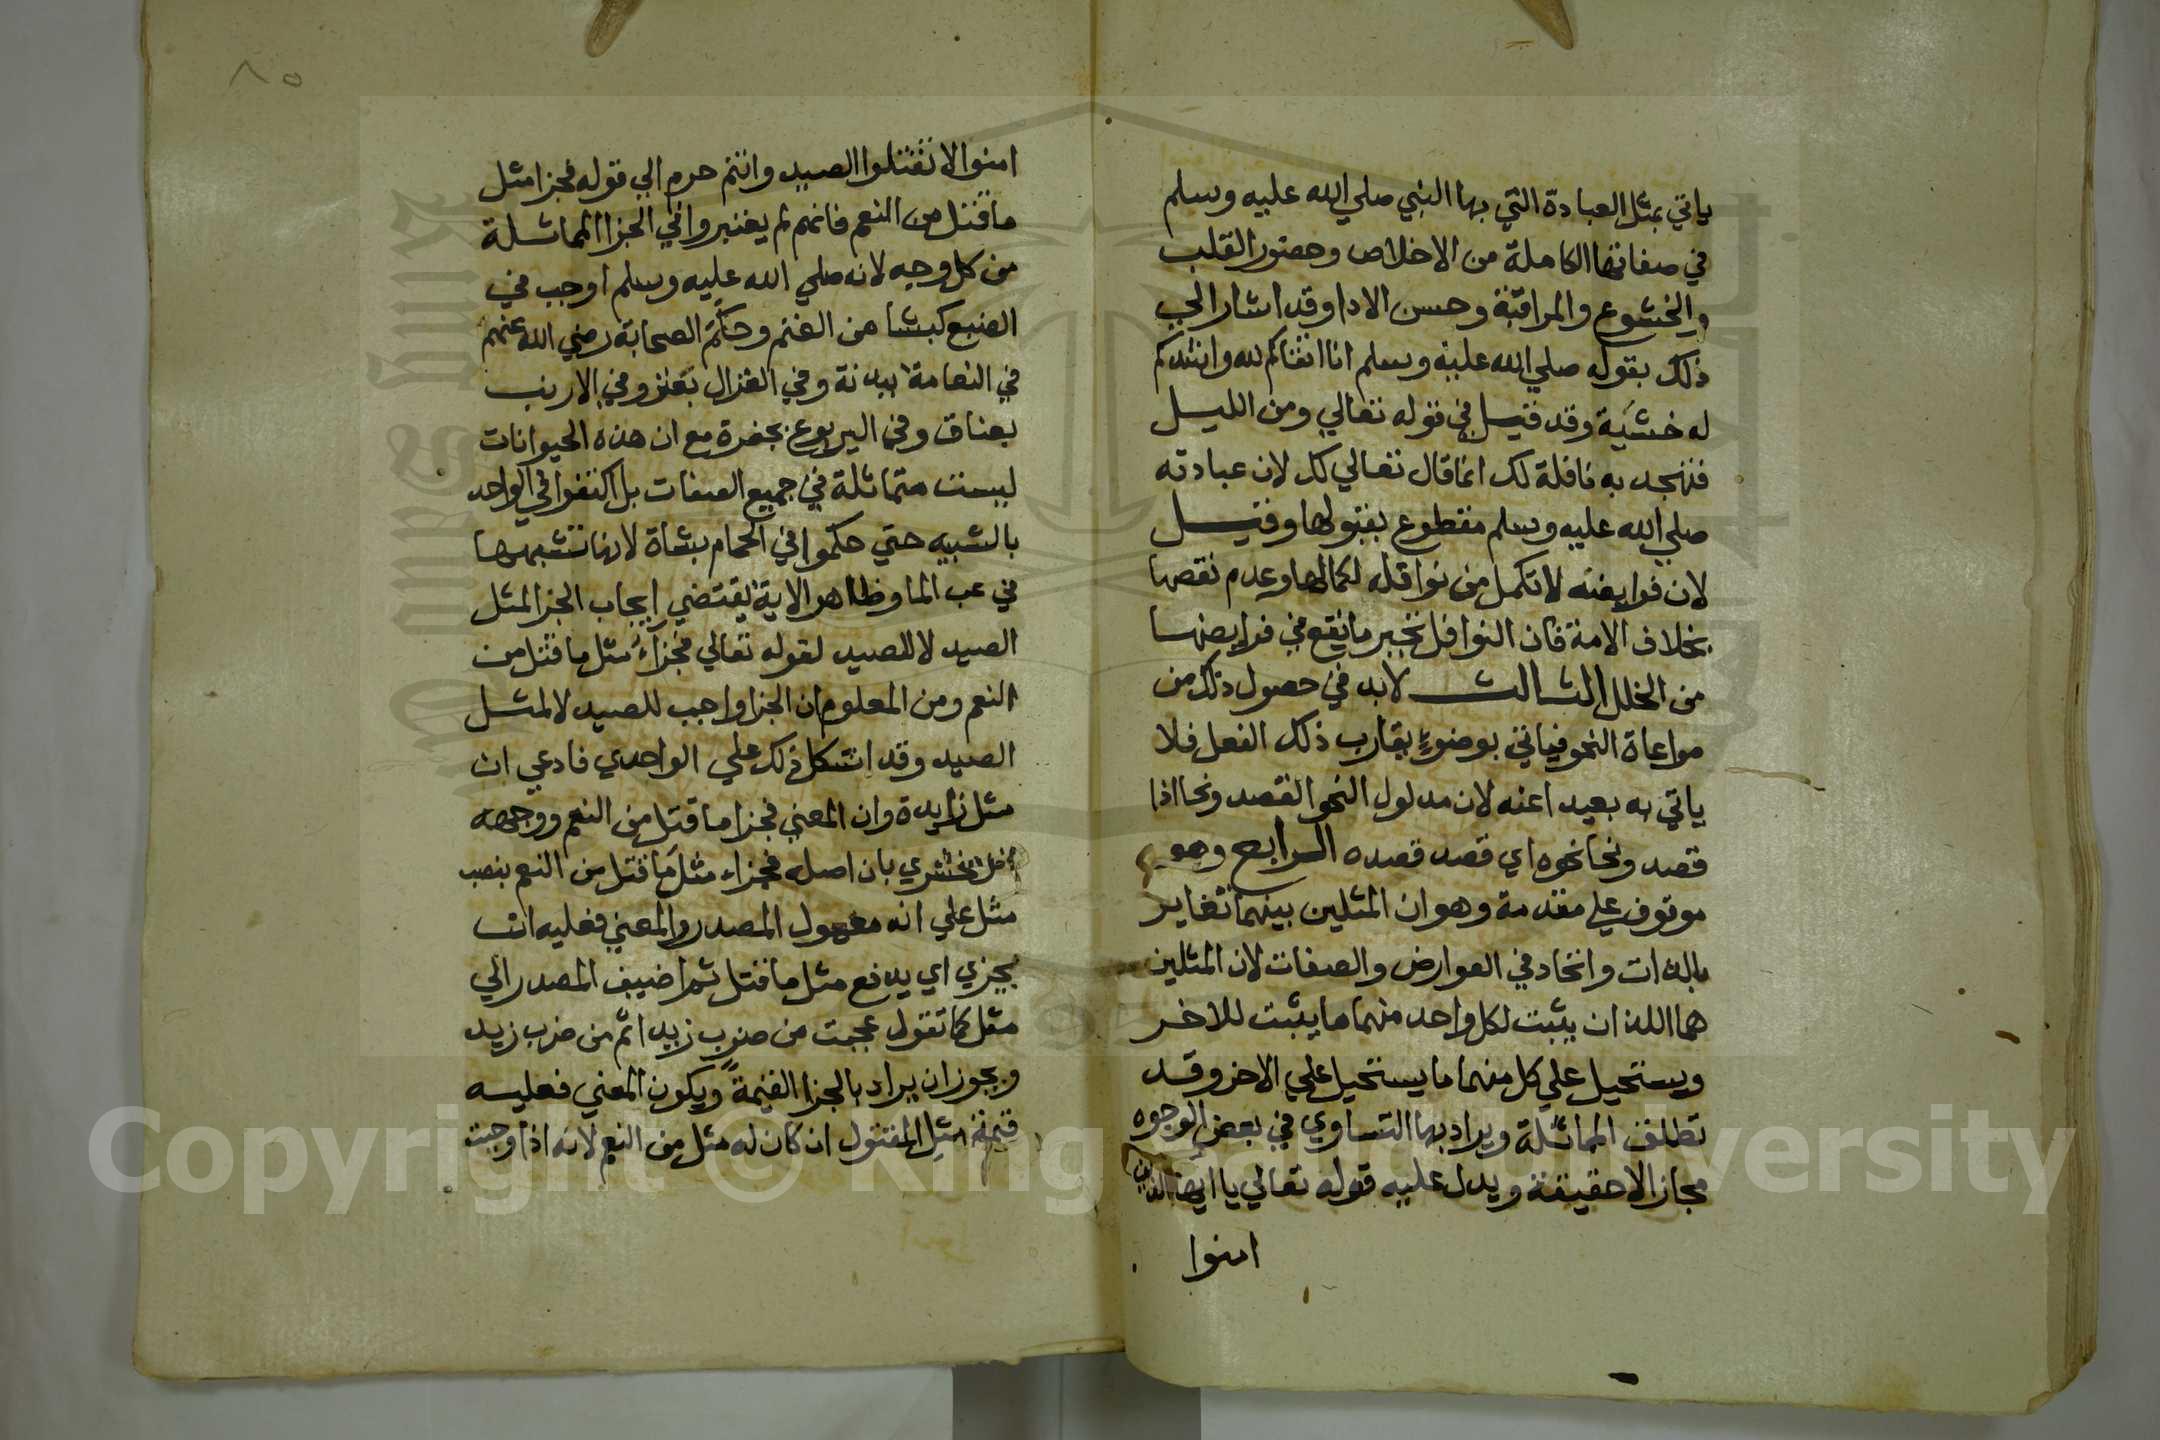 ياتي بمثل العبادة التي بها النبي صلي الله عليه وسلم
في صفاتها الكاملة من الاخلاص وحضور القلب
والخشوع والمراقبة وحسن الادا وقد اشار الي
ذلك بقوله صلي الله عليه وسلم انا اتقاكم لله واشدكم
له خشية وقد قيل في قوله تعالي ومن الليل
فتهجد به نافلة لك انما قال تعالي لك لان عبادته
صلي الله عليه وسلم مقطوع بقبولها وقيل
لان فرايضه لا تكمل من نوافله لكمالها وعدم نقصها
بخلاف الامة فان النوافل تجبر ما يقع في فرايضها
من الخلل الثالث لابد في حصول ذلك من
مراعاة النحو فياتي بوضوء يقارب ذلك الفعل فلا
ياتي به بعيدا عنه لان مدلول النحو القصد ونحا اذا
قصد ونحا نحوه اي قصد قصده الرابع وهو
موقوف علي مقدمة وهو ان المثلين بينهما تغاير
بالذات واتحاد في العوارض والصفات لان المثلين
هما اللذان يثبت لكل واحد منهما ما يثبت للاخر
ويستحيل علي كل منهما ما يستحيل علي الاخر وقد
تطلق المماثلة ويراد بها التساوي في بعض الوجوه
مجازا لا حقيقة ويدل عليه قوله تعالي يا ايها الذين
امنوا
٨٥
امنوا لا تقتلوا الصيد وانتم حرم الي قوله فجزا مثل
ما قتل من النعم فانهم لم يعتبروا في الجزا المماثلة
من كل وجه لانه صلي الله عليه وسلم اوجب في
الضبع كبشا من الغنم وحكم الصحابة رضي الله عنهم
في النعامة ببدنة وفي الغزال بعنز وفي الارنب
بعناق وفي اليربوع بجفرة مع ان هذه الحيوانات
ليست متماثلة في جميع الصفات بل اكتفوا في الواحد
بالشبيه حتي حكموا في الحمام بشاة لانها تشبهها
في عب الما وظاهر الاية يقتضي ايجاب الجزا لمثل
الصيد لا للصيد لقوله تعالي فجزاء مثل ما قتل من
النعم ومن المعلوم ان الجزا واجب للصيد لا لمثل
الصيد وقد اشكل ذلك علي الواحدي فادعي ان
مثل زايدة وان المعني فجزا ما قتل من النعم ووجهه
الزمخشري بان اصله فجزاء مثل ما قتل من النعم بنصب
مثل علي انه مفعول المصدر والمعني فعليه ان
يجزي اي يدفع مثل ما قتل ثم اضيف المصدر الي
مثل كما تقول عجبت من ضرب زيدا ثم من ضرب زيد
ويجوز ان يراد بالجزا القيمة ويكون المعني فعليه
قيمة مثل المقتول ان كان له مثل من النعم لانه اذا وجبت
King Saud University
Copyright © King Saud University